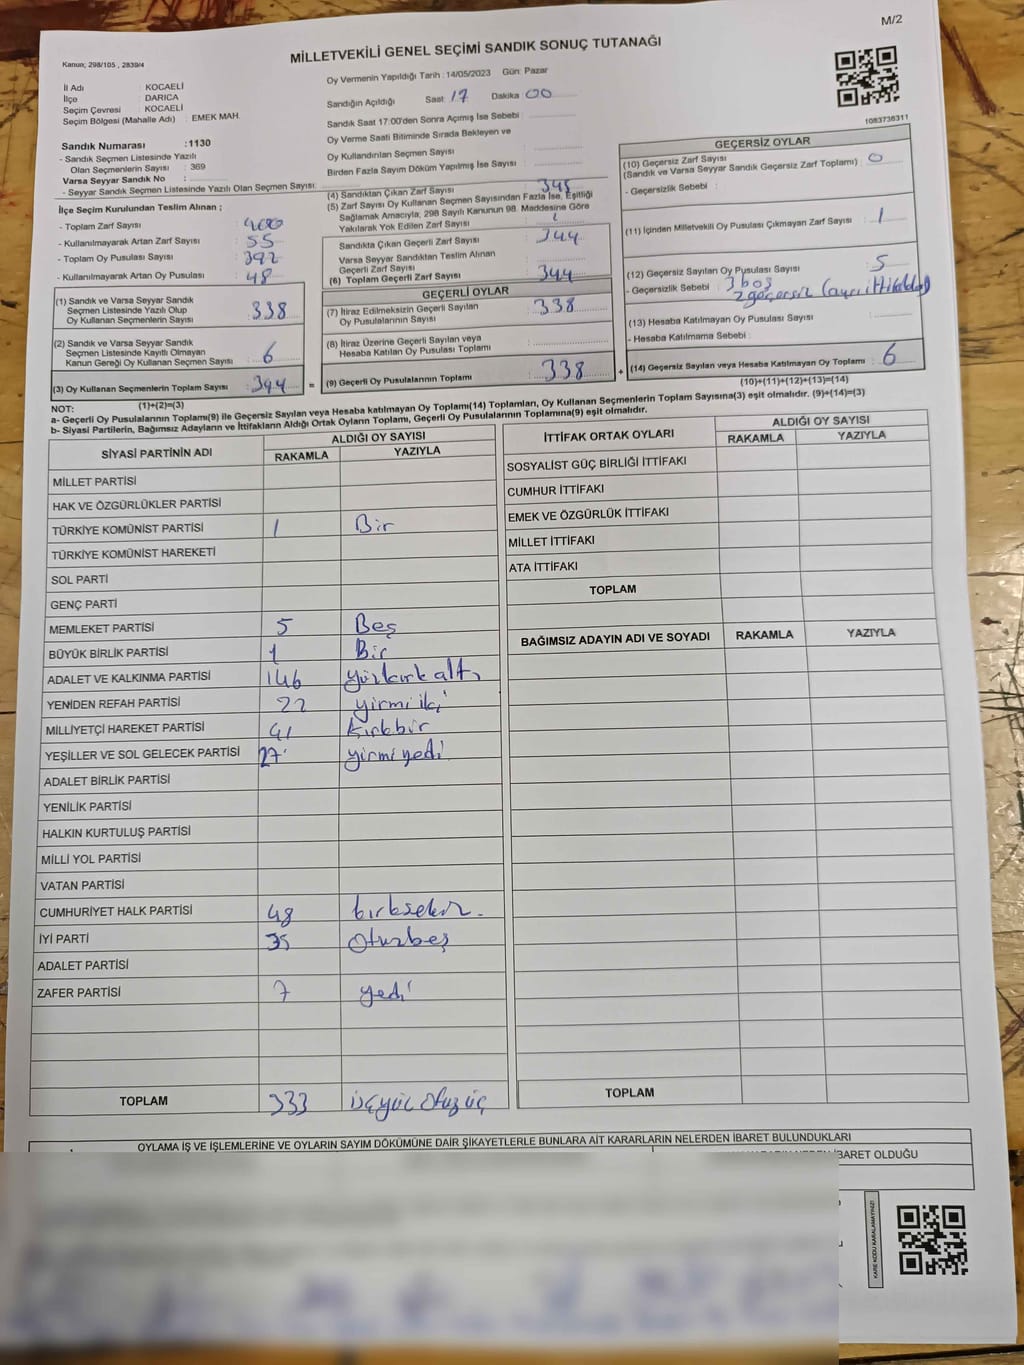 M/2
MİLLETVEKİLİ GENEL SEÇİMİ SANDIK SONUÇ TUTANAĞI
Kanun; 298/105 , 2839/4
İl Adı : KOCAELİ
İlçe : DARICA
Seçim Çevresi : KOCAELİ
Seçim Bölgesi (Mahalle Adı) : EMEK MAH.
Sandık Numarası :1130
- Sandık Seçmen Listesinde Yazılı
Olan Seçmenlerin Sayısı : 369
Varsa Seyyar Sandık No :
- Seyyar Sandık Seçmen Listesinde Yazılı Olan Seçmen Sayısı:
İlçe Seçim Kurulundan Teslim Alınan ;
- Toplam Zarf Sayısı : 400
- Kullanılmayarak Artan Zarf Sayısı : 55
- Toplam Oy Pusulası Sayısı : 392
- Kullanılmayarak Artan Oy Pusulası : 48
(1) Sandık ve Varsa Seyyar Sandık
Seçmen Listesinde Yazılı Olup
Oy Kullanan Seçmenlerin Sayısı : 338
(2) Sandık ve Varsa Seyyar Sandık
Seçmen Listesinde Kayıtlı Olmayan
Kanun Gereği Oy Kullanan Seçmen Sayısı : 6
(3) Oy Kullanan Seçmenlerin Toplam Sayısı : 344 =
(1)+(2)=(3)
Oy Vermenin Yapıldığı Tarih : 14/05/2023 Gün: Pazar
Sandığın Açıldığı Saat : 17 Dakika : 00
Sandık Saat 17:00'den Sonra Açmış İse Sebebi :
Oy Verme Saati Bitiminde Sırada Bekleyen ve
Oy Kullandırılan Seçmen Sayısı :
Birden Fazla Sayım Döküm Yapılmış İse Sayısı :
(4) Sandıktan Çıkan Zarf Sayısı : 345
(5) Zarf Sayısı Oy Kullanan Seçmen Sayısından Fazla İse, Eşitliği
Sağlamak Amacıyla, 298 Sayılı Kanunun 98. Maddesine Göre
Yakılarak Yok Edilen Zarf Sayısı :
Sandıkta Çıkan Geçerli Zarf Sayısı : 344
Varsa Seyyar Sandıktan Teslim Alınan
Geçerli Zarf Sayısı :
(6) Toplam Geçerli Zarf Sayısı : 344
GEÇERLİ OYLAR
(7) İtiraz Edilmeksizin Geçerli Sayılan
Oy Pusulalarının Sayısı : 338
(8) İtiraz Üzerine Geçerli Sayılan veya
Hesaba Katılan Oy Pusulası Toplamı :
(9) Geçerli Oy Pusulalarının Toplamı : 338 +
1083736311
GEÇERSİZ OYLAR
(10) Geçersiz Zarf Sayısı
(Sandık ve Varsa Seyyar Sandık Geçersiz Zarf Toplamı) : 0
- Geçersizlik Sebebi :
(11) İçinden Milletvekili Oy Pusulası Çıkmayan Zarf Sayısı : 1
(12) Geçersiz Sayılan Oy Pusulası Sayısı : 5
- Geçersizlik Sebebi : 3 boş
2 geçersiz
(13) Hesaba Katılmayan Oy Pusulası Sayısı :
- Hesaba Katılmama Sebebi :
(14) Geçersiz Sayılan veya Hesaba Katılmayan Oy Toplamı : 6
(10)+(11)+(12)+(13)=(14)
NOT:
a- Geçerli Oy Pusulalarının Toplamı(9) ile Geçersiz Sayılan veya Hesaba katılmayan Oy Toplamı(14) Toplamları, Oy Kullanan Seçmenlerin Toplam Sayısına(3) eşit olmalıdır. (9)+(14)=(3)
b- Siyasi Partilerin, Bağımsız Adayların ve İttifakların Aldığı Ortak Oyların Toplamı, Geçerli Oy Pusulalarının Toplamına(9) eşit olmalıdır.
SİYASİ PARTİNİN ADI ALDIĞI OY SAYISI
RAKAMLA YAZIYLA
MİLLET PARTİSİ
HAK VE ÖZGÜRLÜKLER PARTİSİ
TÜRKİYE KOMÜNİST PARTİSİ 1 Bir
TÜRKİYE KOMÜNİST HAREKETİ
SOL PARTİ
GENÇ PARTİ
MEMLEKET PARTİSİ 5 Beş
BÜYÜK BİRLİK PARTİSİ 1 Bir
ADALET VE KALKINMA PARTİSİ 146 yüzkırk altı
YENİDEN REFAH PARTİSİ 22 yirmi iki
MİLLİYETÇİ HAREKET PARTİSİ 41 kırkbir
YEŞİLLER VE SOL GELECEK PARTİSİ 27 yirmi yedi
ADALET BİRLİK PARTİSİ
YENİLİK PARTİSİ
HALKIN KURTULUŞ PARTİSİ
MİLLİ YOL PARTİSİ
VATAN PARTİSİ
CUMHURİYET HALK PARTİSİ 48 kırksekiz.
İYİ PARTİ 35 Otuzbeş
ADALET PARTİSİ
ZAFER PARTİSİ 7 yedi
TOPLAM 333 üçyüz otuz üç
İTTİFAK ORTAK OYLARI ALDIĞI OY SAYISI
RAKAMLA YAZIYLA
SOSYALİST GÜÇ BİRLİĞİ İTTİFAKI
CUMHUR İTTİFAKI
EMEK VE ÖZGÜRLÜK İTTİFAKI
MİLLET İTTİFAKI
ATA İTTİFAKI
TOPLAM
BAĞIMSIZ ADAYIN ADI VE SOYADI RAKAMLA YAZIYLA
TOPLAM
OYLAMA İŞ VE İŞLEMLERİNE VE OYLARIN SAYIM DÖKÜMÜNE DAİR ŞİKAYETLERLE BUNLARA AİT KARARLARIN NELERDEN İBARET BULUNDUKLARI
İBARET OLDUĞU
KARE KODU KARALAMAYINIZ!